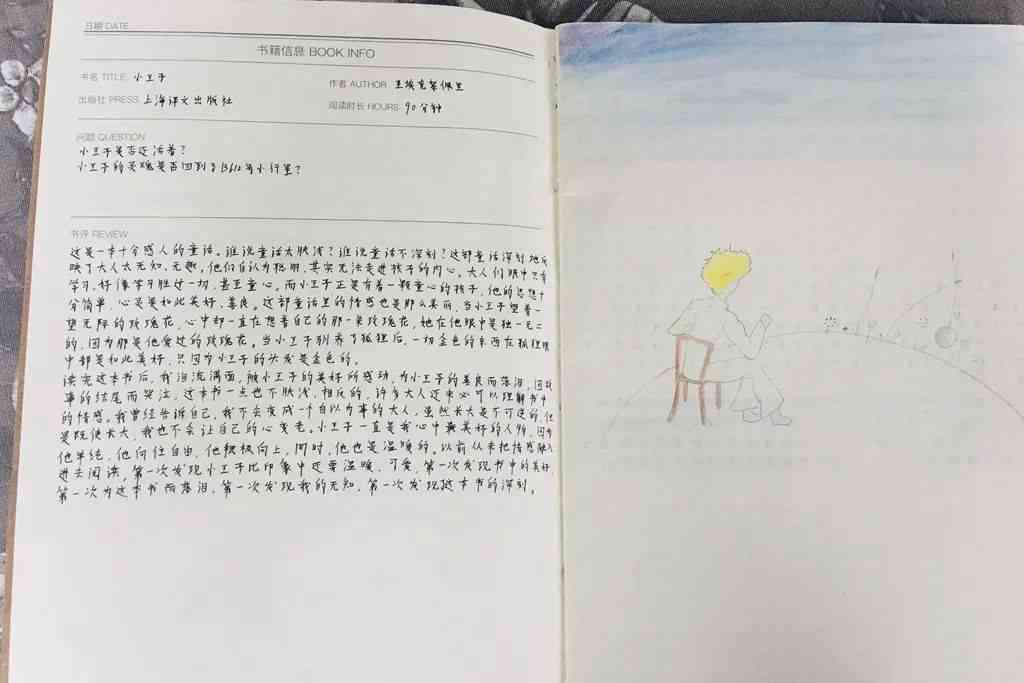 日期 DATE
书籍信息 BOOK INFO
书名 TITLE: 小王子
作者 AUTHOR: 圣埃克絮佩里
出版社 PRESS: 上海译文出版社
阅读时长 HOURS: 90分钟
问题 QUESTION
小王子是否还活着?
小王子的灵魂是否回到了B612号小行星?
书评 REVIEW
这是一本十分感人的童话。谁说童话太肤浅?谁说童话不深刻?这部童话深刻地反
映了大人太无知、无趣。他们自认为聪明,其实无法走进孩子的内心。大人们眼中只有
学习,好像学习胜过一切,甚至童心。而小王子正是有着一颗童心的孩子,他的思想十
分简单,心灵是如此美好、善良。这部童话里的情感也是那么美丽,当小王子望着一
望无际的玫瑰花,心中却一直在想着自己的那一朵玫瑰花,她在他眼中是独一无二
的,因为那是他爱过的玫瑰花。当小王子驯养了狐狸后,一切金色的东西在狐狸眼
中都是如此美好,只因为小王子的头发是金色的。
读完这本书后,我泪流满面,被小王子的美好所感动,为小王子的善良而落泪,因故
事的结尾而哭泣。这本书一点也不肤浅,相反的,许多大人还未必可以理解书中
的情感。我曾经告诉自己,我不会变成一个自以为事的大人,虽然长大是不可逆的,但
是既使长大,我也不会让自己的心变老。小王子一直是我心中最美好的人物,因为
他单纯,他向往自由,他积极向上,同时,他也是温暖的。以前从未把情感融入
进去阅读,第一次发现小王子比印象中还要温暖、可爱,第一次发现书中的美好
第一次为这本书而落泪,第一次发现我的无知,第一次发现这本书的深刻。